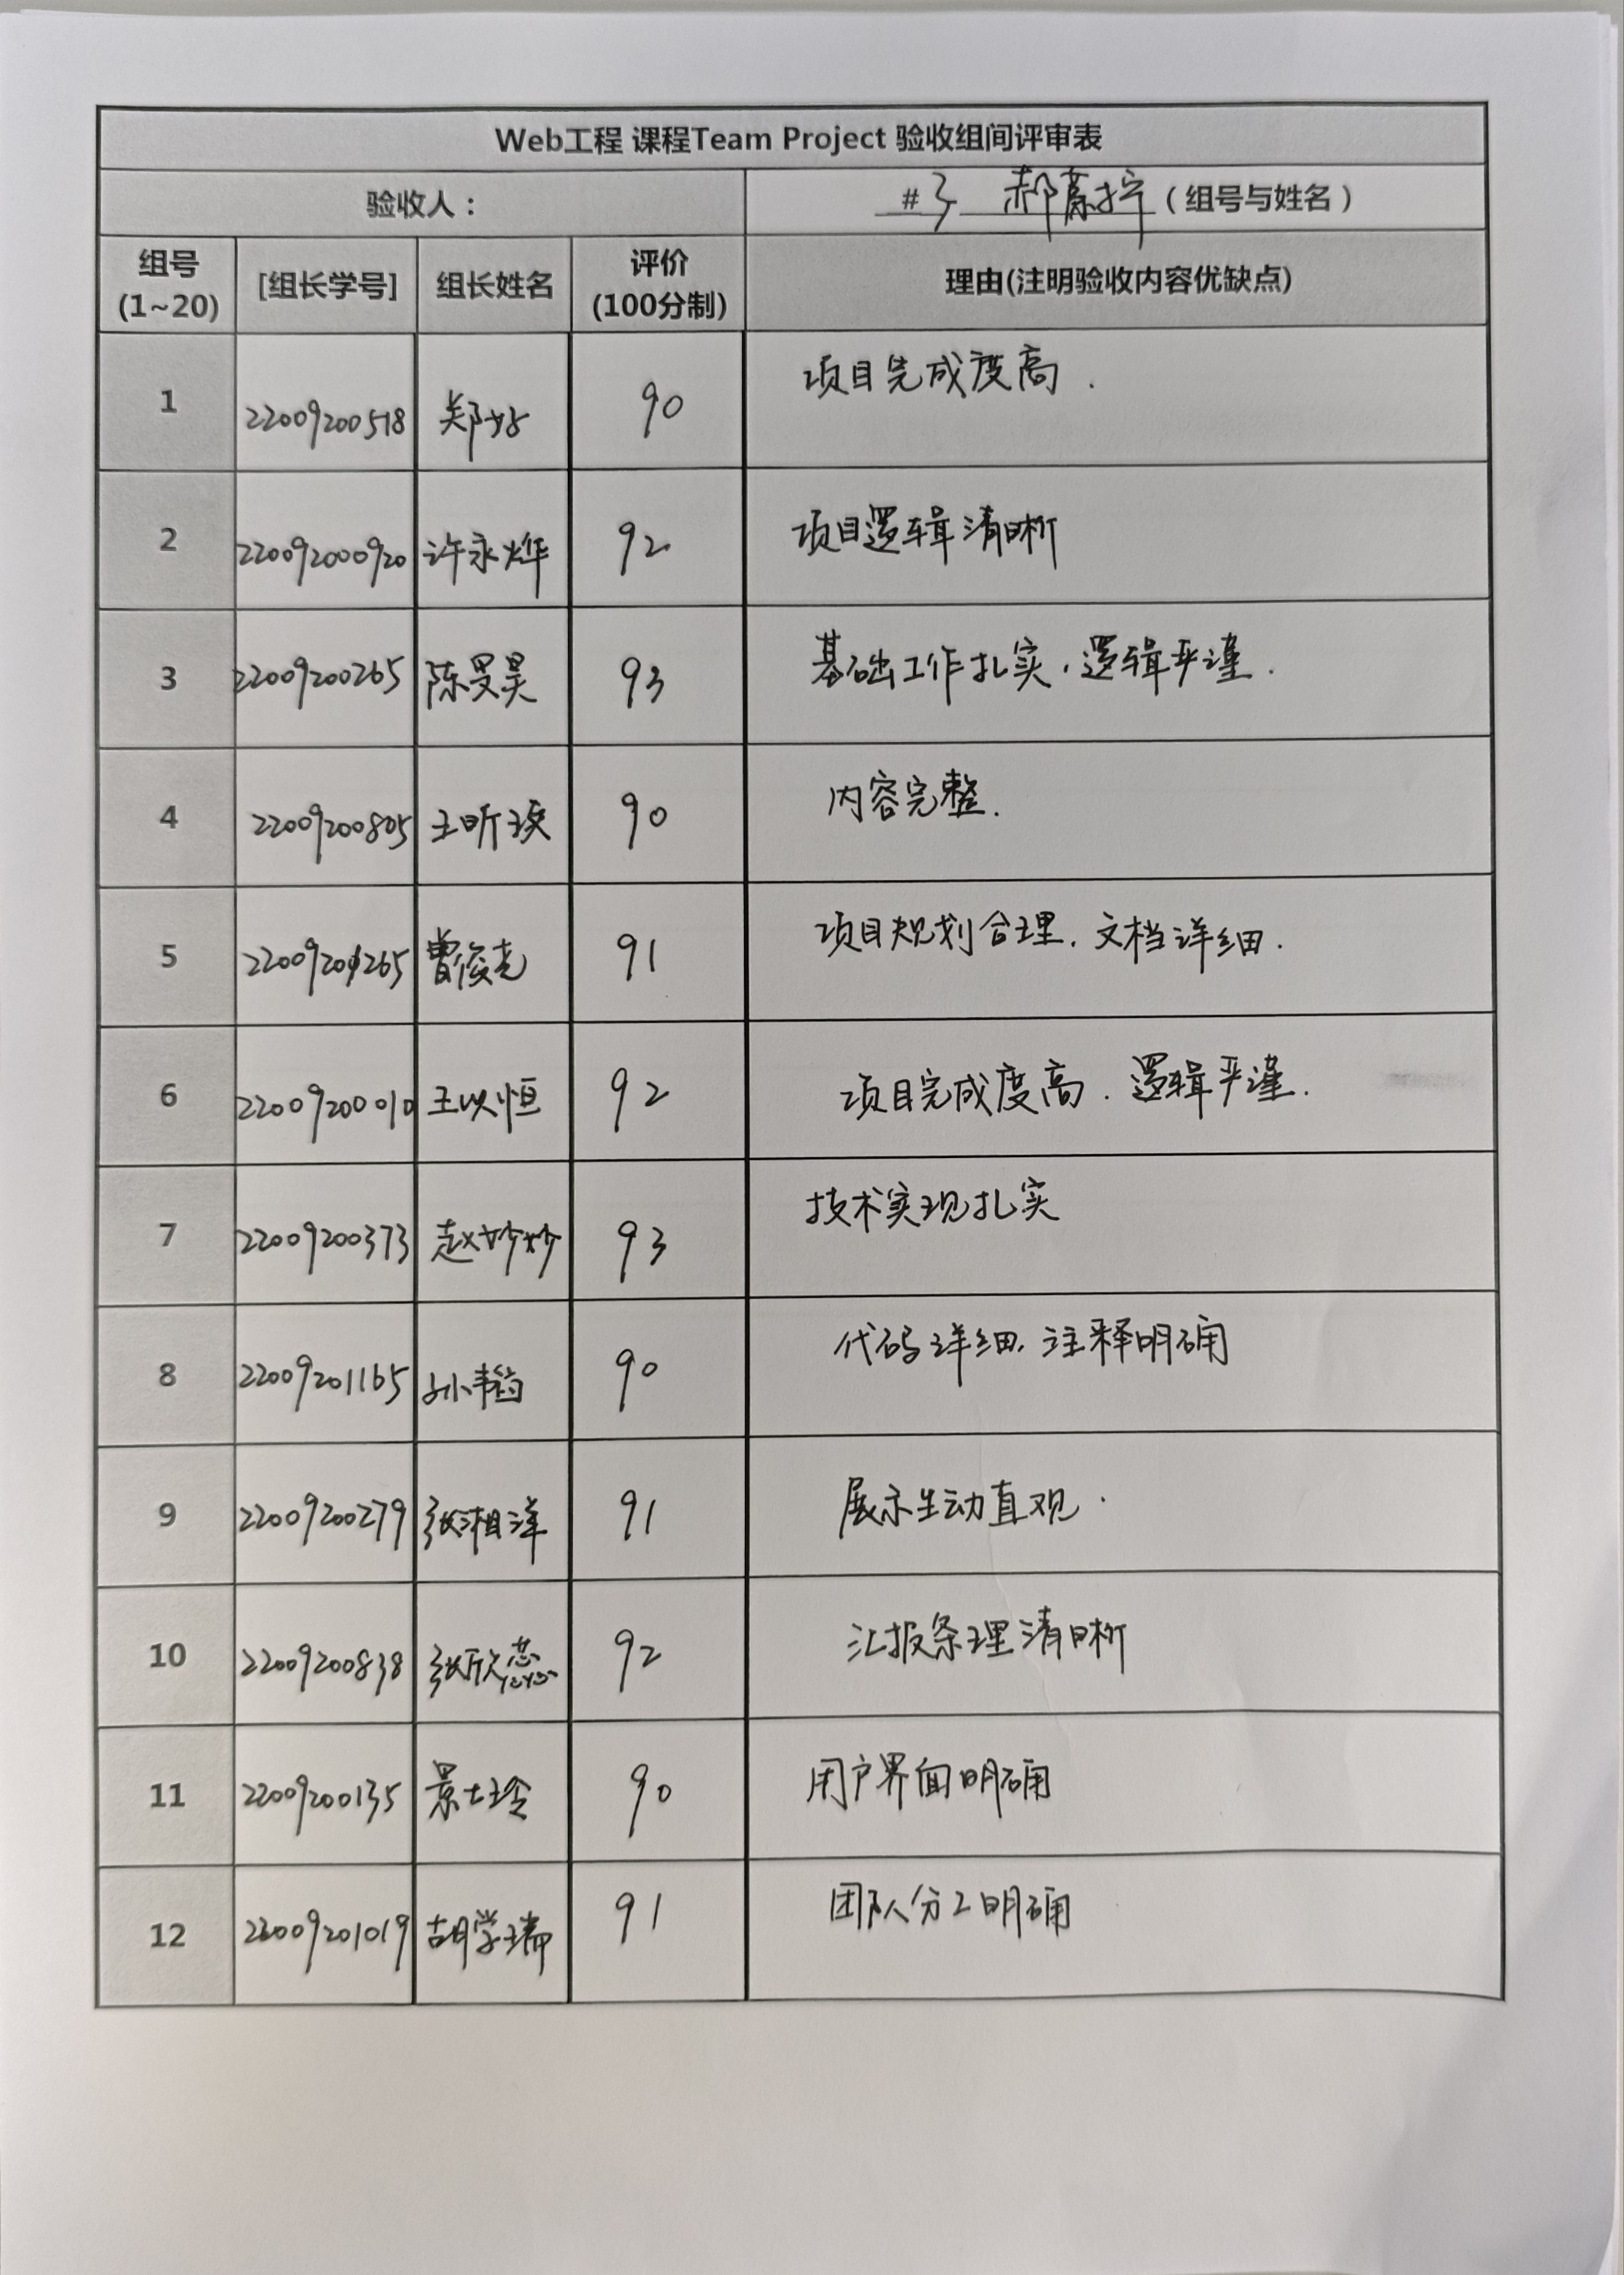 Web工程 课程Team Project 验收组间评审表
验收人： #3 郝蔡拧（组号与姓名）
组号(1~20) [组长学号] 组长姓名 评价(100分制) 理由(注明验收内容优缺点)
1 22009200518 郑好 90 项目完成度高.
2 22009200920 许永烨 92 项目逻辑清晰
3 22009200265 陈旻昊 93 基础工作扎实，逻辑严谨.
4 22009200805 王昕瑛 90 内容完整.
5 22009201265 曹俊尧 91 项目规划合理，文档详细.
6 22009200010 王以恒 92 项目完成度高．逻辑严谨.
7 22009200373 赵妙妙 93 技术实现扎实
8 22009201165 孙韵 90 代码详细，注释明确
9 22009200279 张湘洋 91 展示生动直观.
10 22009200838 张欣蕊 92 汇报条理清晰
11 22009200135 景士玲 90 用户界面明确
12 22009201019 胡学瑞 91 团队分工明确